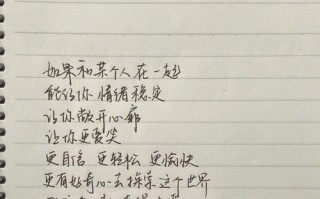 如果和某个人在一起
能让你情绪稳定
让你敞开心廊
让你更爱笑
更自信 更轻松 更愉快
更有好奇心去探索这个世界